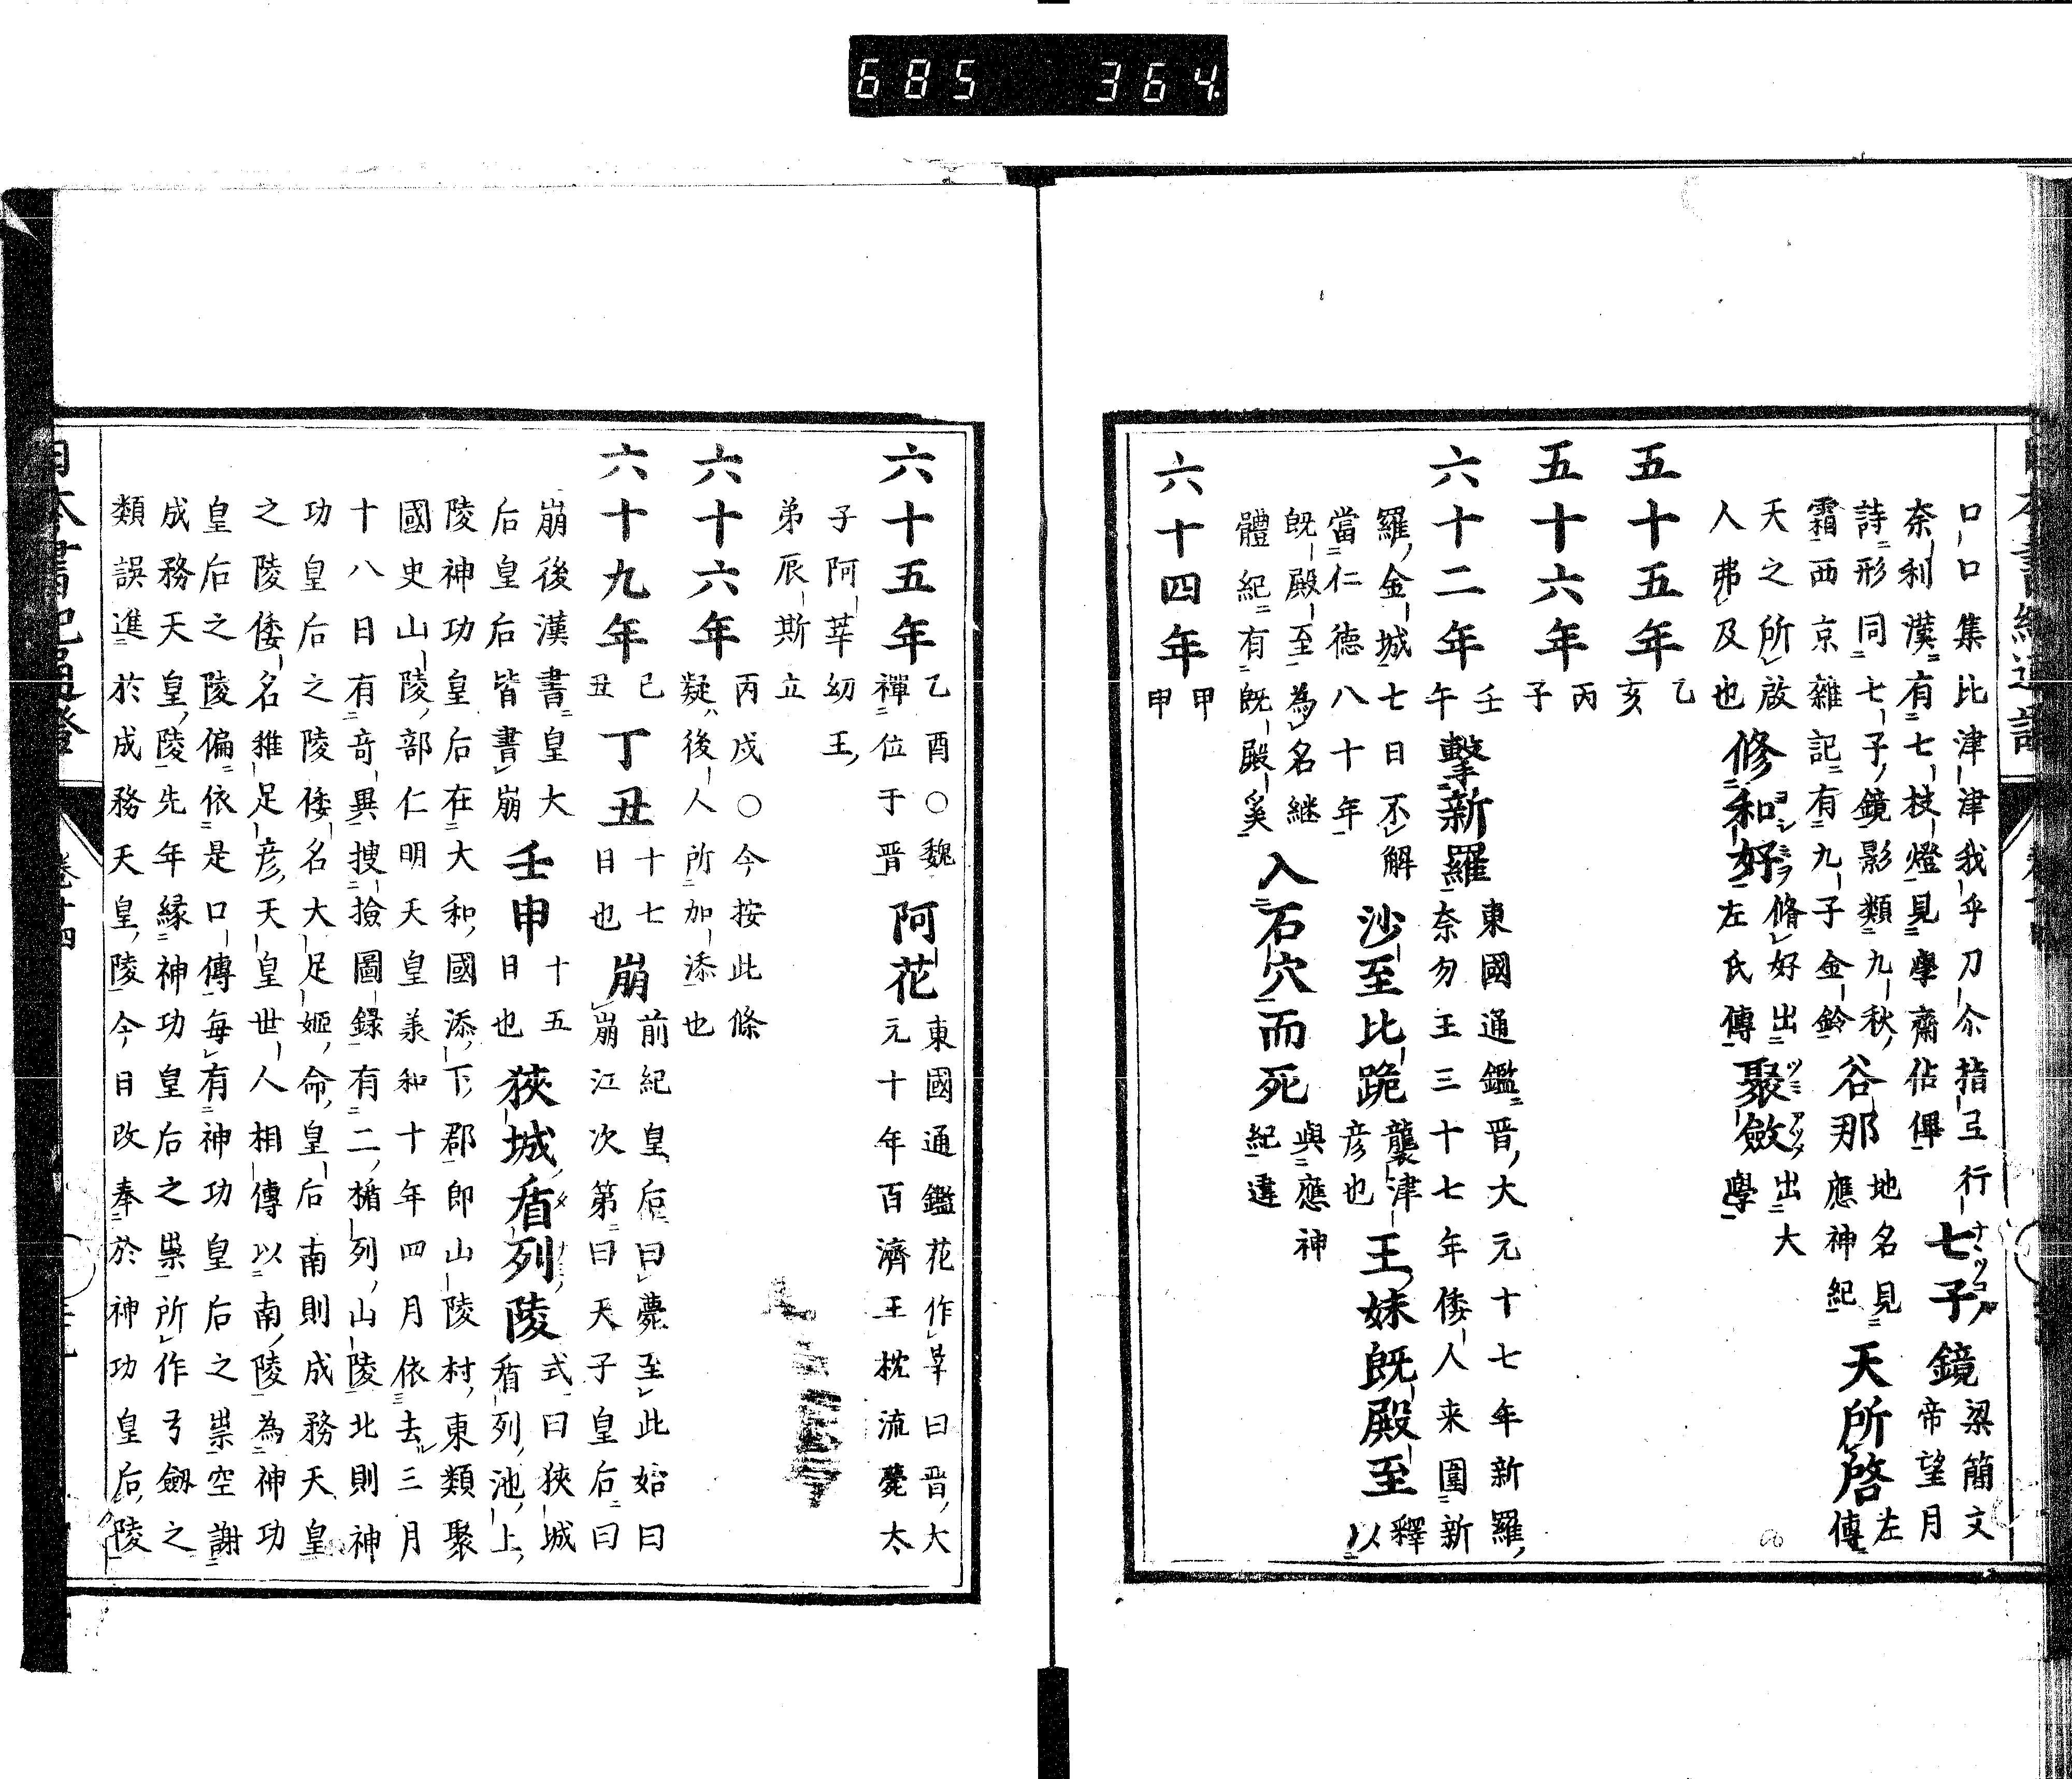 685 364
口口集比津津我乎刀尒指弖行七子鏡梁簡文
奈利漢有七枝燈見學齋佔俾帝望月
詩形同七子鏡影類九秋谷那地名見天所啓左
霜西京雜記有九子金鈴應神紀傳
天之所啟修和好脩好出聚斂出大
人弗及也左氏傳學
五十五年乙亥
五十六年丙子
六十二年壬午擊新羅東國通鑑晋大元十七年新羅
奈勿王三十七年倭人来圍新
羅金城七日不解沙至比跪襲津彦也王妹既殿至釋以
當仁德八十年
既殿至為名継入石穴而死與應神
體紀有既殿奚紀違
六十四年甲申
六十五年乙酉○魏禪位于晋阿花東國通鑑花作莘曰晋大
元十年百濟王枕流薨太
子阿莘幼王
弟辰斯立
六十六年丙戌○今按此條
疑後人所加添也
六十九年己丑丁丑十七日也崩前紀皇后曰薨至此始曰
崩江次第曰天子皇后曰
崩後漢書皇大壬申十五日也狹城盾列陵式曰狹城
后皇后皆書崩盾列池上
陵神功皇后在大和國添下郡郎山陵村東類聚
國史山陵部仁明天皇羕和十年四月依去三月
十八日有奇異捜撿圖録有二楯列山陵北則神
功皇后之陵倭名大足姬命皇后南則成務天皇
之陵倭名稚足彦天皇世人相傳以南陵為神功
皇后之陵偏依是口傳每有神功皇后之祟空謝
成務天皇陵先年縁神功皇后之祟所作弓劔之
類誤進於成務天皇陵今日改奉於神功皇后陵